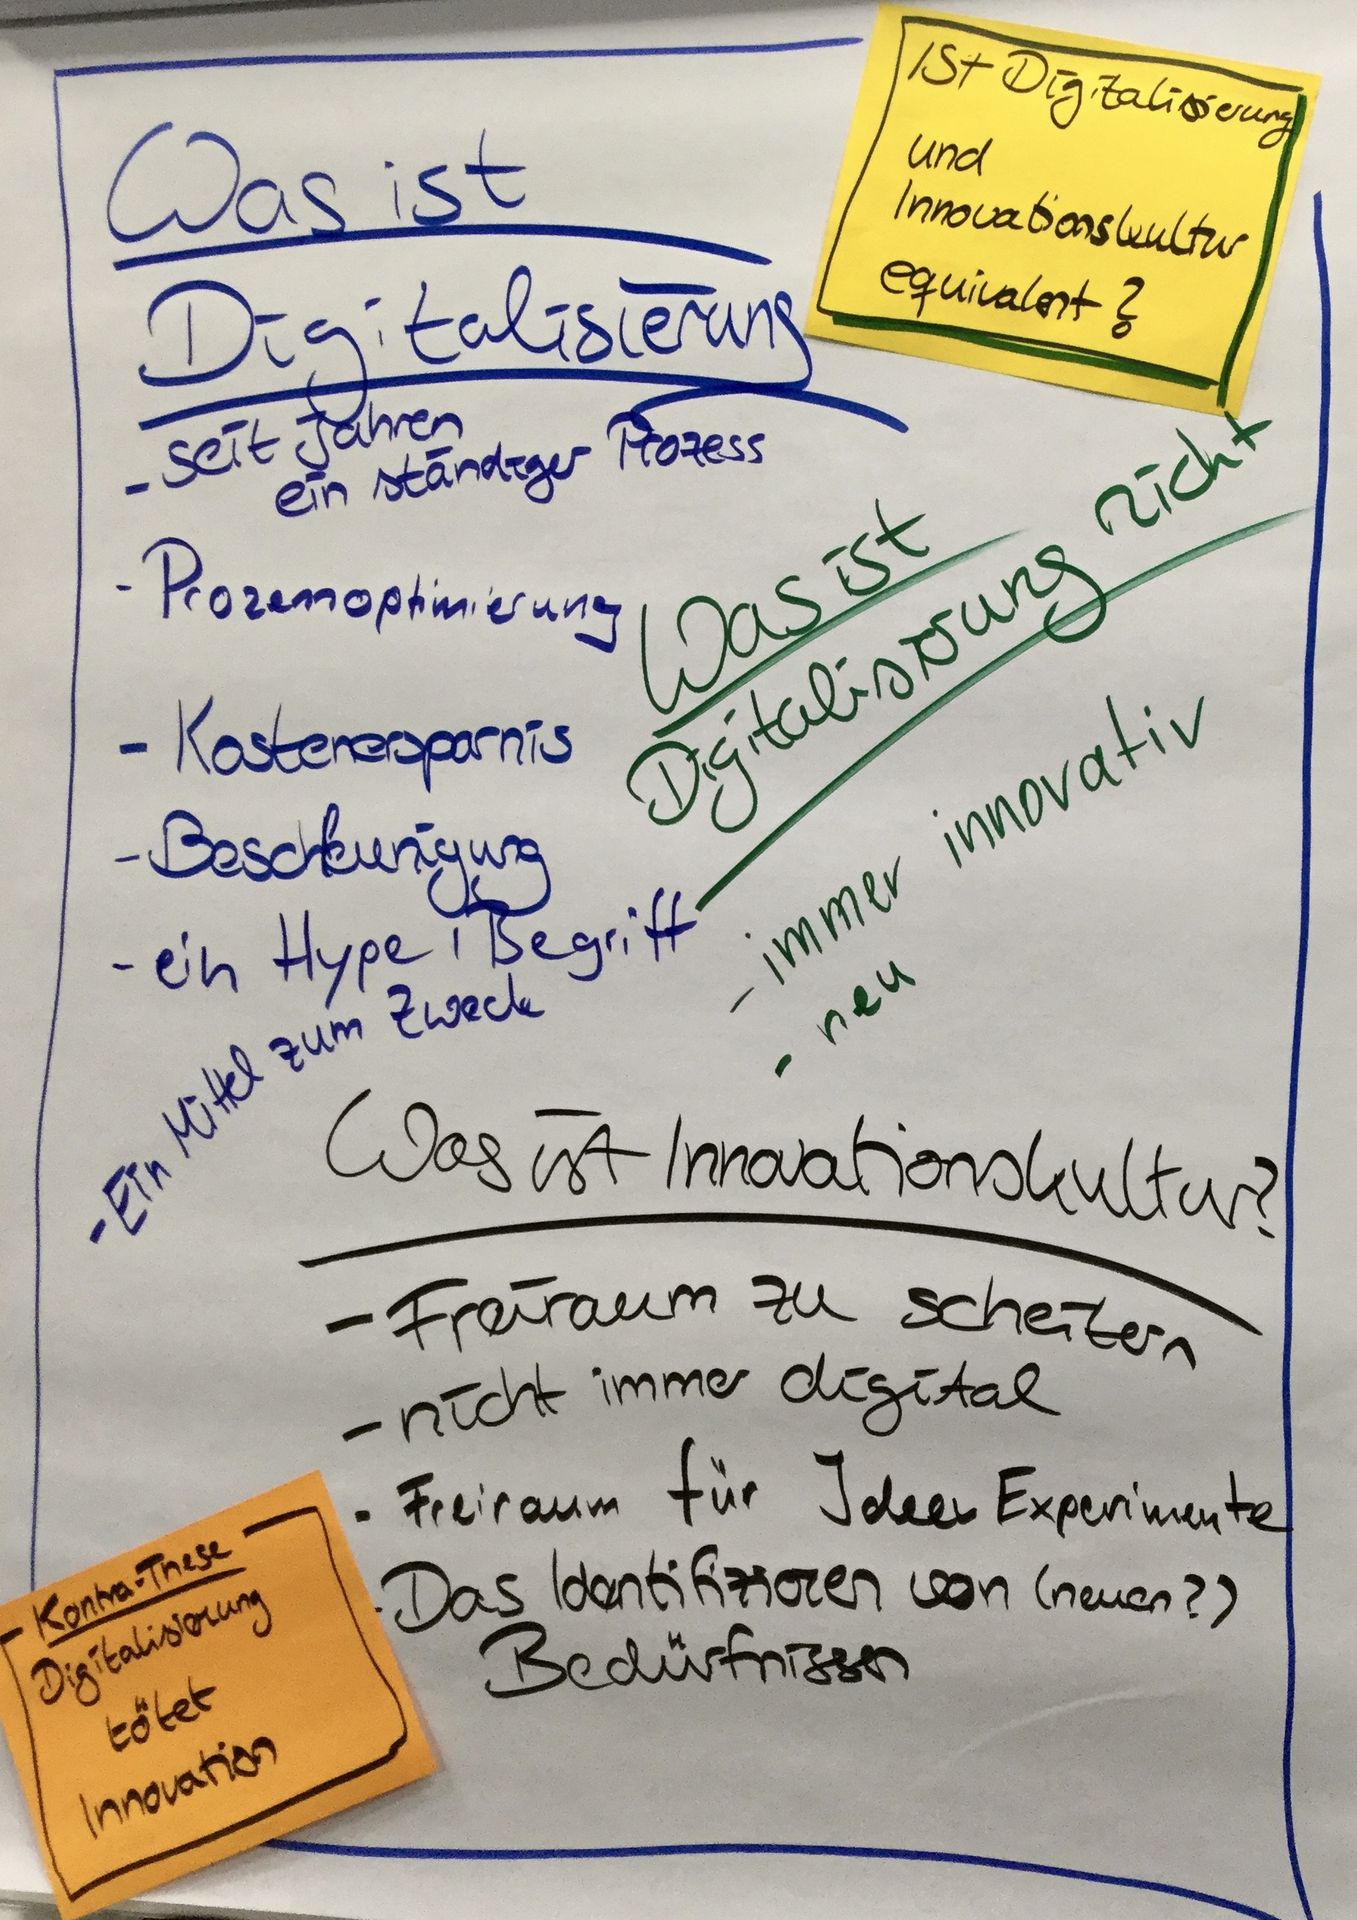 Ist Digitalisierung
und
Innovationskultur
equivalent?
Was ist
Digitalisierung
- seit Jahren
ein ständiger Prozess
- Prozessoptimierung
- Kostenersparnis
- Beschleunigung
- ein Hype, Begriff
- Ein Mittel zum Zweck
Was ist
Digitalisierung nicht
- immer innovativ
- neu
Was ist Innovationskultur?
- Freiraum zu scheitern
- nicht immer digital
- Freiraum für Ideen Experimente
- Das Identifizieren von (neuen?)
Bedürfnissen
Kontra-These
Digitalisierung
tötet
Innovation